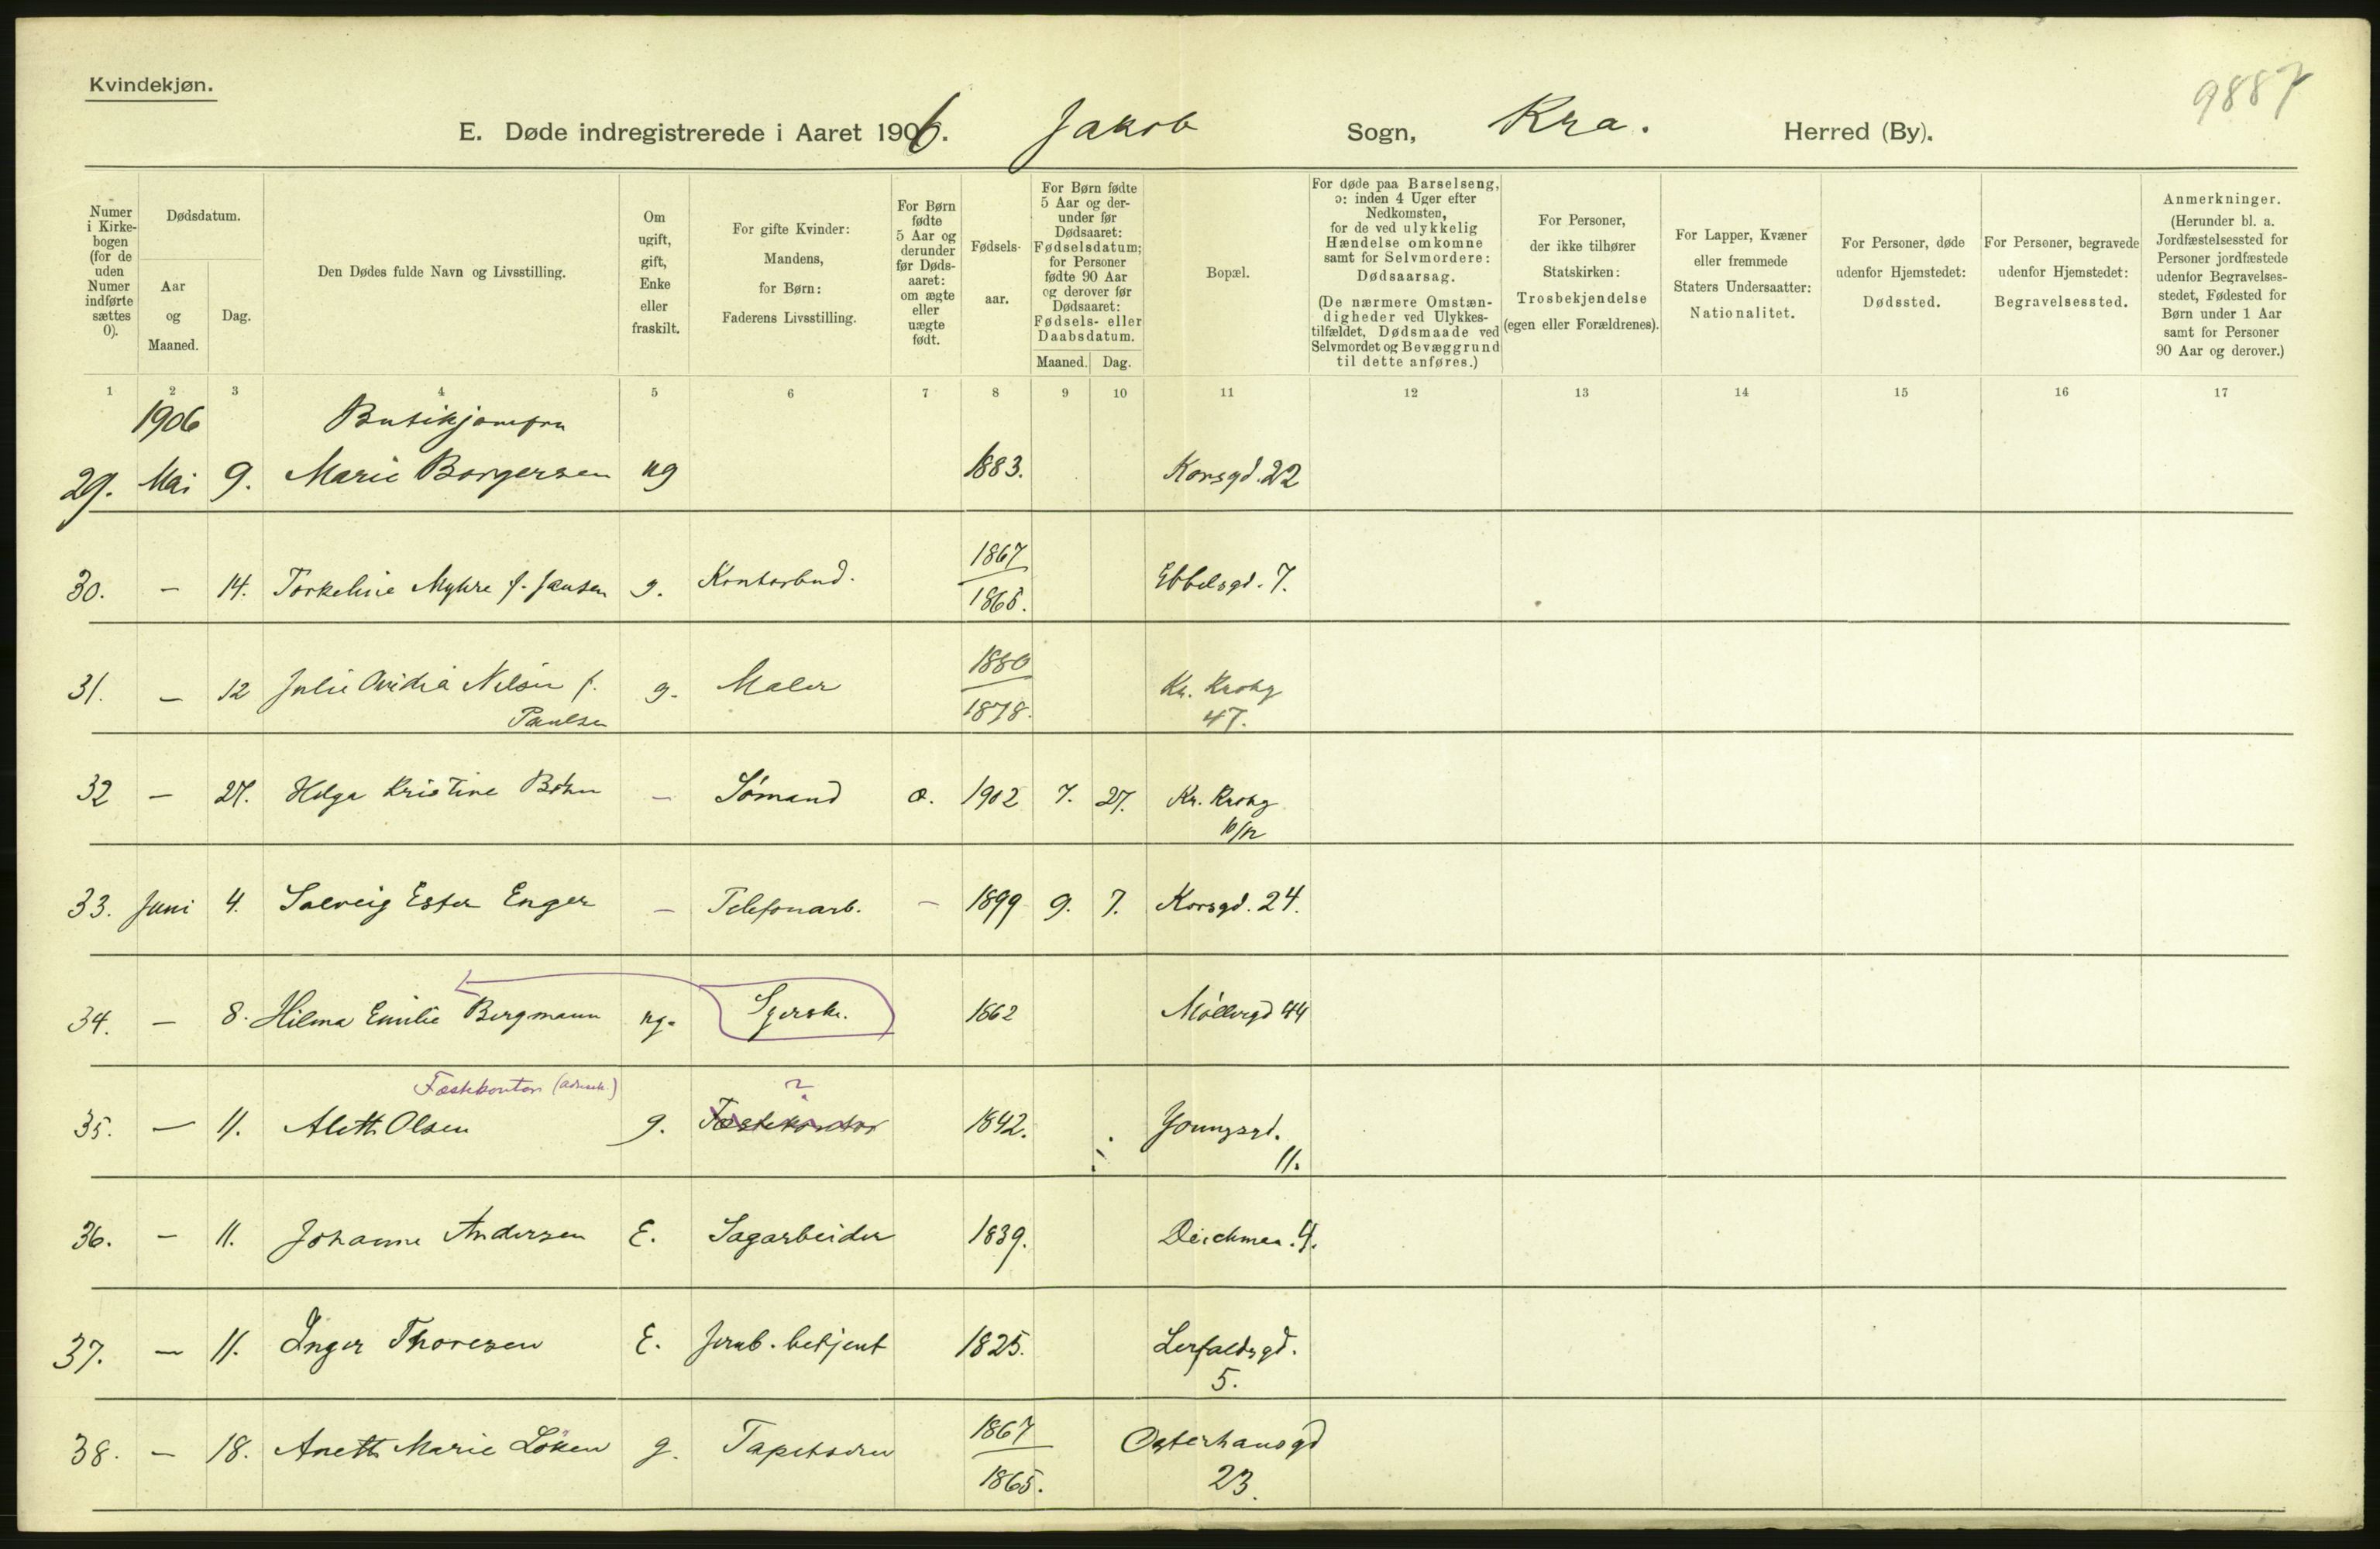 Kvindekjøn.
9887
E. Døde indregistrerede i Aaret 1906. Jakob Sogn, Kra. Herred (By).
Numer i Kirke-bogen (for de uden Numer indførte sættes 0).
Dødsdatum.
Aar og Maaned.
Dag.
Den Dødes fulde Navn og Livsstilling.
Om ugift, gift, Enke eller fraskilt.
For gifte Kvinder: Mandens, for Børn: Faderens Livsstilling.
For Børn fødte 5 Aar og derunder før Døds-aaret: om ægte eller uægte født.
Fødsels-aar.
For Børn fødte 5 Aar og der-under før Dødsaaret: Fødselsdatum; for Personer fødte 90 Aar og derover før Dødsaaret: Fødsels- eller Daabsdatum.
Maaned. Dag.
Bopæl.
For døde paa Barselseng, ɔ: inden 4 Uger efter Nedkomsten, for de ved ulykkelig Hændelse omkomne samt for Selvmordere: Dødsaarsag.
(De nærmere Omstæn-digheder ved Ulykkes-tilfældet, Dødsmaade ved Selvmordet og Bevæggrund til dette anføres.)
For Personer, der ikke tilhører Statskirken: Trosbekjendelse (egen eller Forældrenes).
For Lapper, Kvæner eller fremmede Staters Undersaatter: Nationalitet.
For Personer, døde udenfor Hjemstedet: Dødssted.
For Personer, begravede udenfor Hjemstedet: Begravelsessted.
Anmerkninger. (Herunder bl. a. Jordfæstelsessted for Personer jordfæstede udenfor Begravelses-stedet, Fødested for Børn under 1 Aar samt for Personer 90 Aar og derover.)
1 2 3 4 5 6 7 8 9 10 11 12 13 14 15 16 17
1906 Butikjomfru
29. Mai 9. Marie Borgersen ug 1883. Korsgd. 22
1867
30. — 14. Torkeline Myhre f. Jansen g. Kontorbud. Ebbelsgd. 7.
1865.
1880
31. — 12 Julie Ovidia Nilsen f. g. Maler Kr. Krohg
Paulsen 1878. 47.
32 — 27. Helga Kristine Böhn — Sömand æ. 1902 7. 27. Kr. Krohg
10/12
33. Juni 4. Solveig Ester Enger — Telefonarb. — 1899 9. 7. Korsgd. 24.
34. — 8. Hilma Emilie Bergmann ug. Syersk. 1862 Möllergd 44
Fæstekontor ?
35. — 11. Aleth Olsen g. Fæstekontor 1842. Youngsgd.
11.
36. — 11. Johanne Andersen E. Sagarbeider 1839. Deichman. 4.
37. — 11. Inger Thoresen E. Jernb. betjent 1825. Lerfaldsgd.
5.
1867
38. — 18. Aneth Marie Löken g. Tapetserer Osterhausgd
1865. 23.